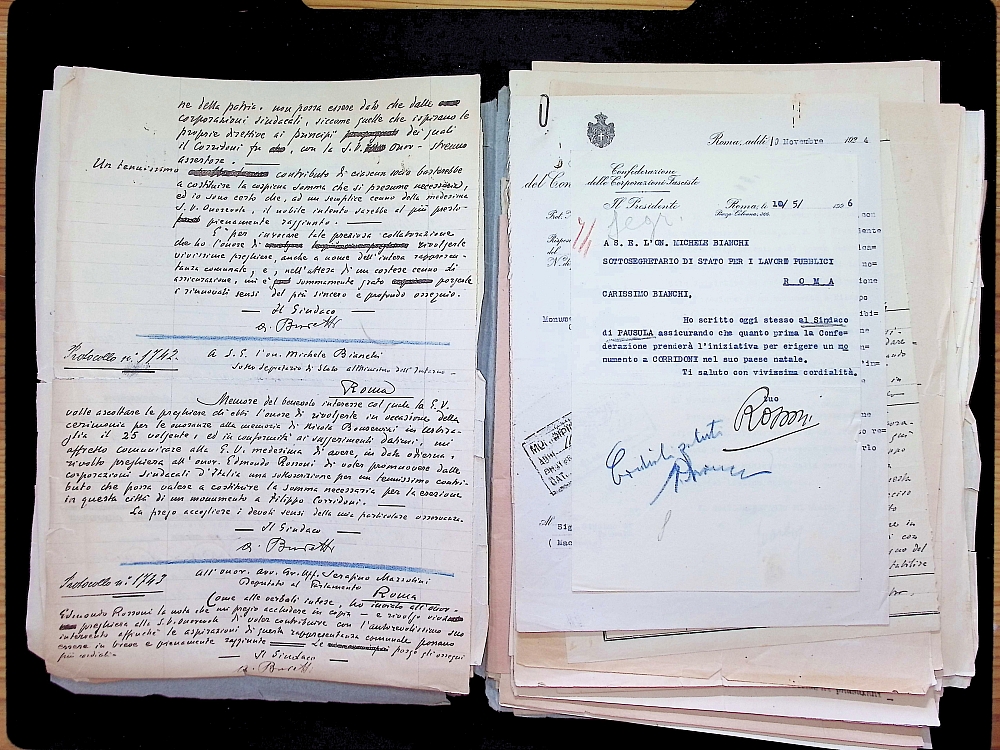 ne della patria. non possa essere dato che dalle
corporazioni sindacati, siccome quelle che ispirano le
proprie direttive ai principi dei quali
il Corridoni fu con la S.V. Onor. strenuo
assertore.
Un tenuissimo contributo di ciascun socio basterebbe
a costituire la cospicua somma che si presume necessaria,
ed io sono certo che, ad un semplice cenno della medesima
S.V. Onorevole, il nobile intento sarebbe al più presto
pienamente raggiunto.
È per invocare tale preziosa collaborazione
che ho l'onore di rivolgerle
vivissime preghiere, anche a nome dell'intera rappresen-
tanza comunale, e, nell'attesa di un cortese cenno di
assicurazione, mi è sommamente grato porgerle
i rinnovati sensi del più sincero e profondo ossequio.
— Il Sindaco —
Protocollo n. 1742.
A S.E. l'on. Michele Bianchi
Sotto Segretario di Stato all'Interno
Roma
Memore del benevolo interesse col quale la E.V.
volle ascoltare le preghiere ch'ebbi l'onore di rivolgerle in occasione della
cerimonia per le onoranze alla memoria di Nicola Bonservizi in Urbisa-
glia il 25 volgente, ed in conformità ai suggerimenti datimi, mi
affretto comunicare alla E.V. medesima di avere, in data odierna,
rivolto preghiera all'onor. Edmondo Rossoni di voler promuovere dalle
corporazioni sindacati d'Italia una sottoscrizione per un tenuissimo contri-
buto che possa valere a costituire la somma necessaria per la erezione
in questa città di un monumento a Filippo Corridoni.
La prego accogliere i devoti sensi della mia particolare osservanza.
— Il Sindaco —
Protocollo n. 1743
All'onor. avv. Gr. Uff. Serafino Mazzolini
Deputato al Parlamento
Roma
Come alle verbali intese, ho inviato all'onor.
Edmondo Rossoni la nota che mi pregio accludere in copia e rivolgo
preghiera alla S.V. Onorevole di voler contribuire con l'autorevolissimo suo
intervento affinchè le aspirazioni di questa rappresentanza comunale possano
essere in breve e pienamente raggiunte. Le porgo gli ossequi
più cordiali.
— Il Sindaco
Roma, addì 10 Novembre 1924
del Con
Confederazione
delle Corporazioni Fasciste
Il Presidente
Roma, li 10/ 5/ 1926
A S. E. L'ON. MICHELE BIANCHI
SOTTOSEGRETARIO DI STATO PER I LAVORI PUBBLICI
R O M A
CARISSIMO BIANCHI,
Ho scritto oggi stesso al Sindaco
di PAUSULA assicurando che quanto prima la Confe=
derazione prenderà l'iniziativa per erigere un mo
numento a CORRIDONI nel suo paese natale.
Ti saluto con vivissima cordialità.
tuo
Rossoni
Cordiali saluti
Al Sig
( Mac